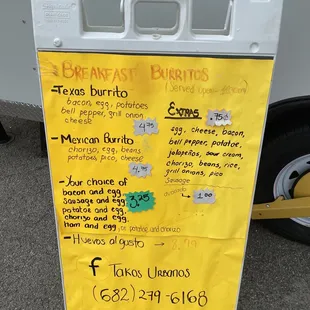 Breakfast Burritos
(Served
-Texas burrito
bacon, egg, potatoes
bell pepper, grill onion
cheese
4.75
-Mexican Burrito
chorizo, egg, beans
potatoes, pico, cheese
4.75
-Your choice of
bacon and egg
Sausage and egg
potatoe and egg
chorizo and egg
Ham and egg, or potatoe and chorizo
3.25
-Huevos al gusto → 8.99
Extras .75¢
egg, cheese, bacon,
bell pepper, potatoe,
jalapeños, sour cream,
chorizo, beans, rice,
grill onions, pico
Sausage
avocado 1.00
f Takos Urbanos
(682) 279-6168